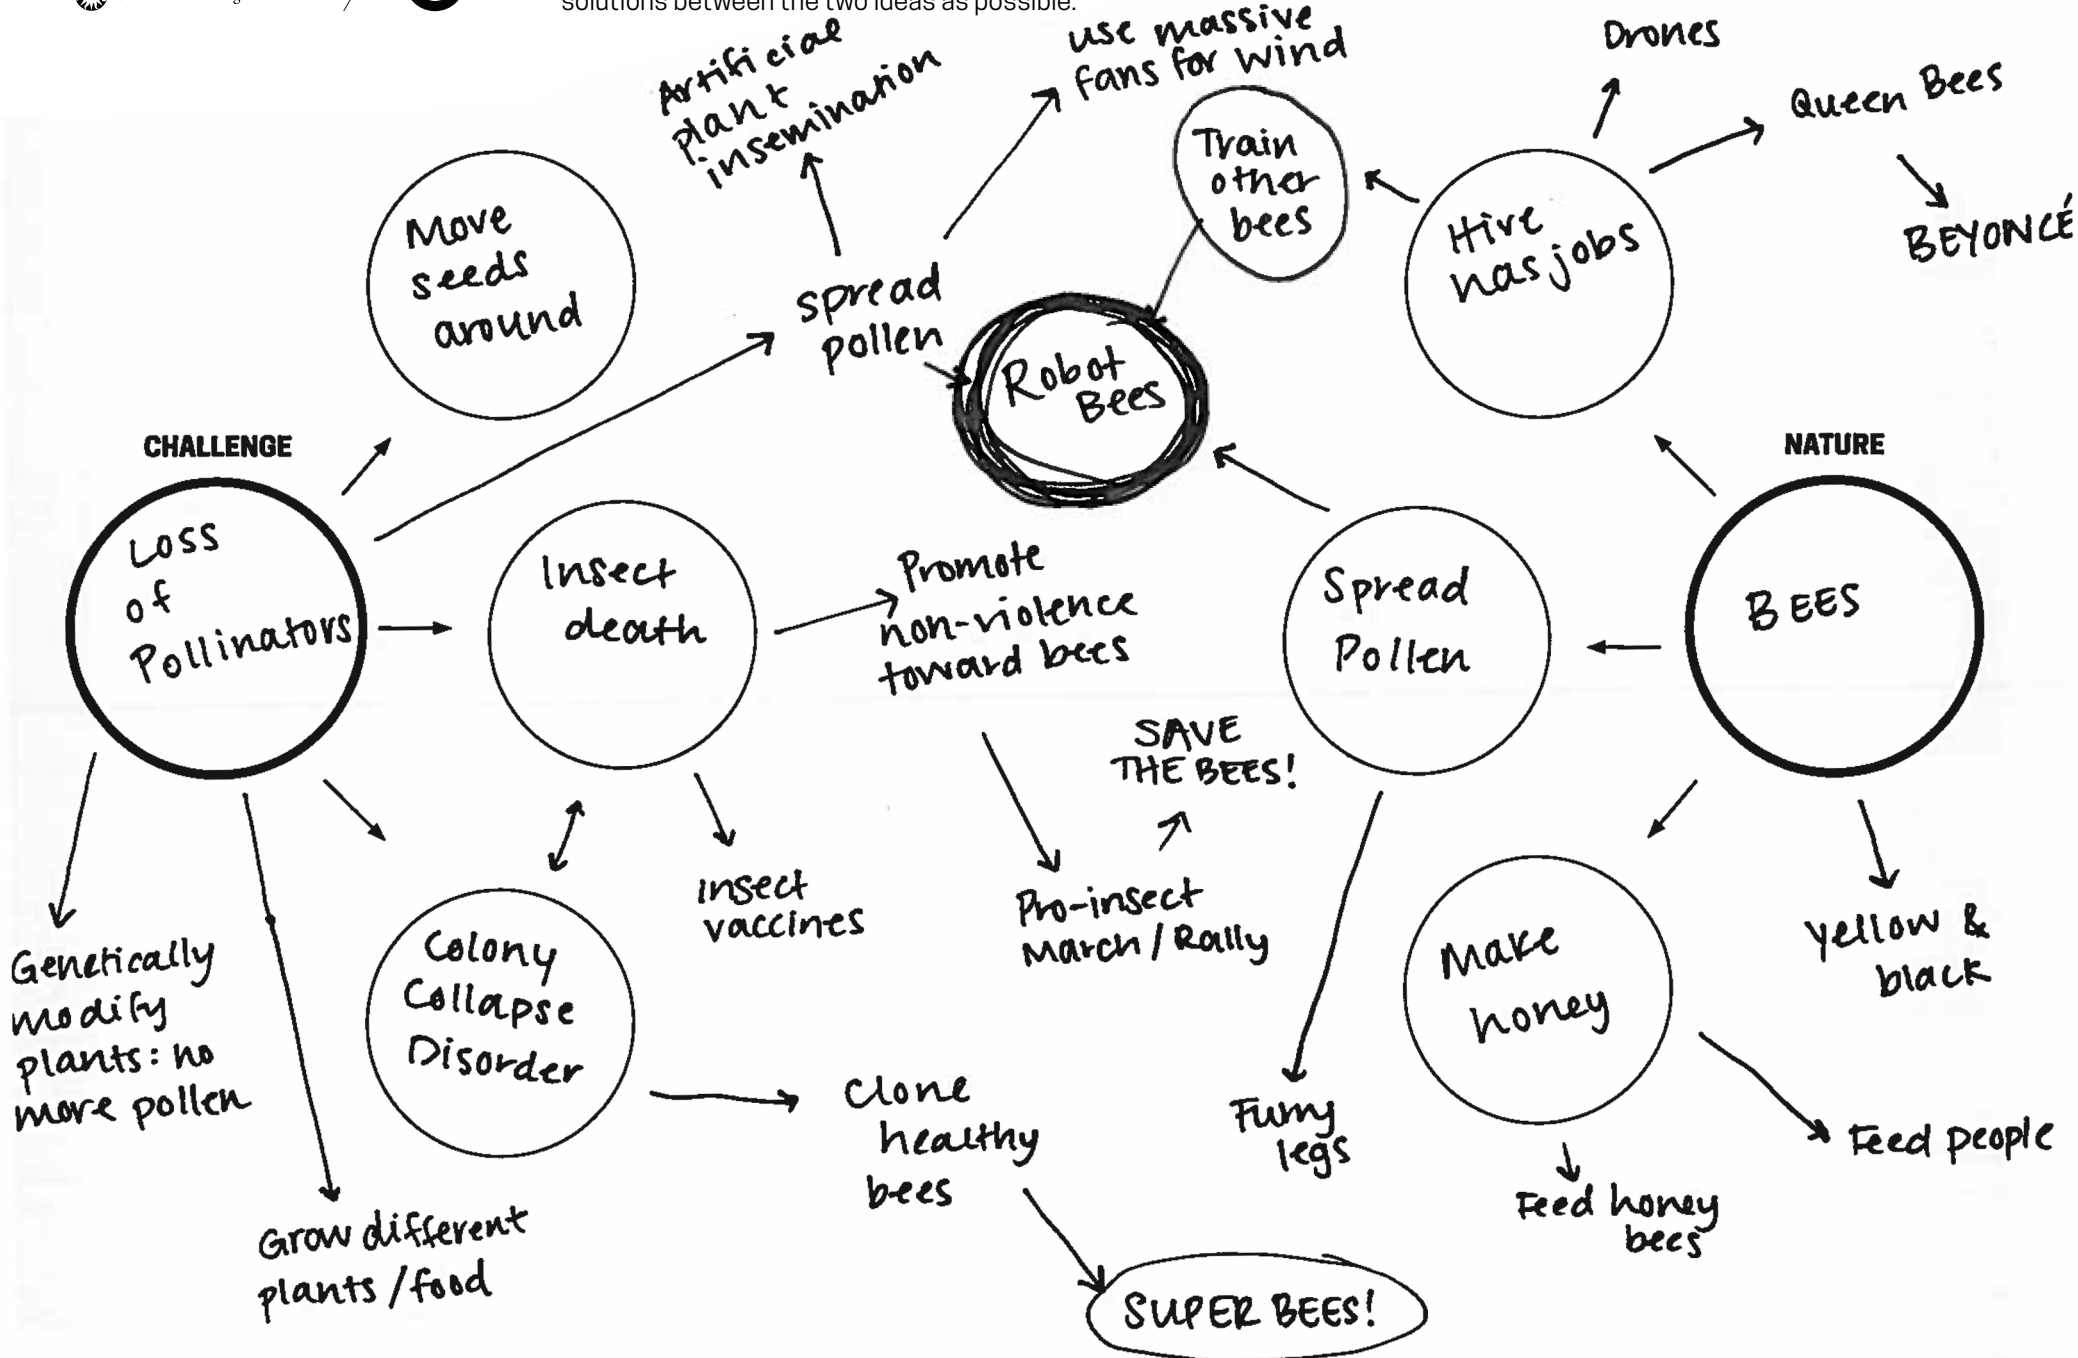 solutions between the two ideas as possible.
Artificial
plant
insemination
use massive
fans for wind
Drones
Queen Bees
BEYONCÉ
Train
other
bees
Hive
has jobs
Move
seeds
around
spread
pollen
Robot
Bees
CHALLENGE
NATURE
Loss
of
Pollinators
Insect
death
Promote
non-violence
toward bees
Spread
Pollen
BEES
SAVE
THE BEES!
Insect
vaccines
Pro-insect
March / Rally
Yellow &
black
Genetically
modify
plants: no
more pollen
Colony
Collapse
Disorder
Make
honey
Clone
healthy
bees
Furry
legs
Feed people
Feed honey
bees
Grow different
plants / food
SUPER BEES!